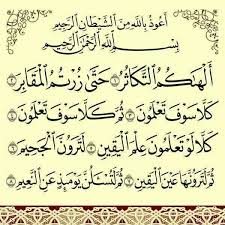 أعوذ بالله من الشيطان الرجيم
بسم الله الرحمن الرحيم
ألهاكم التكاثر ١ حتى زرتم المقابر ٢
كلا سوف تعلمون ٣ ثم كلا سوف تعلمون ٤
كلا لو تعلمون علم اليقين ٥ لترون الجحيم ٦
ثم لترونها عين اليقين ٧ ثم لتسألن يومئذ عن النعيم ٨